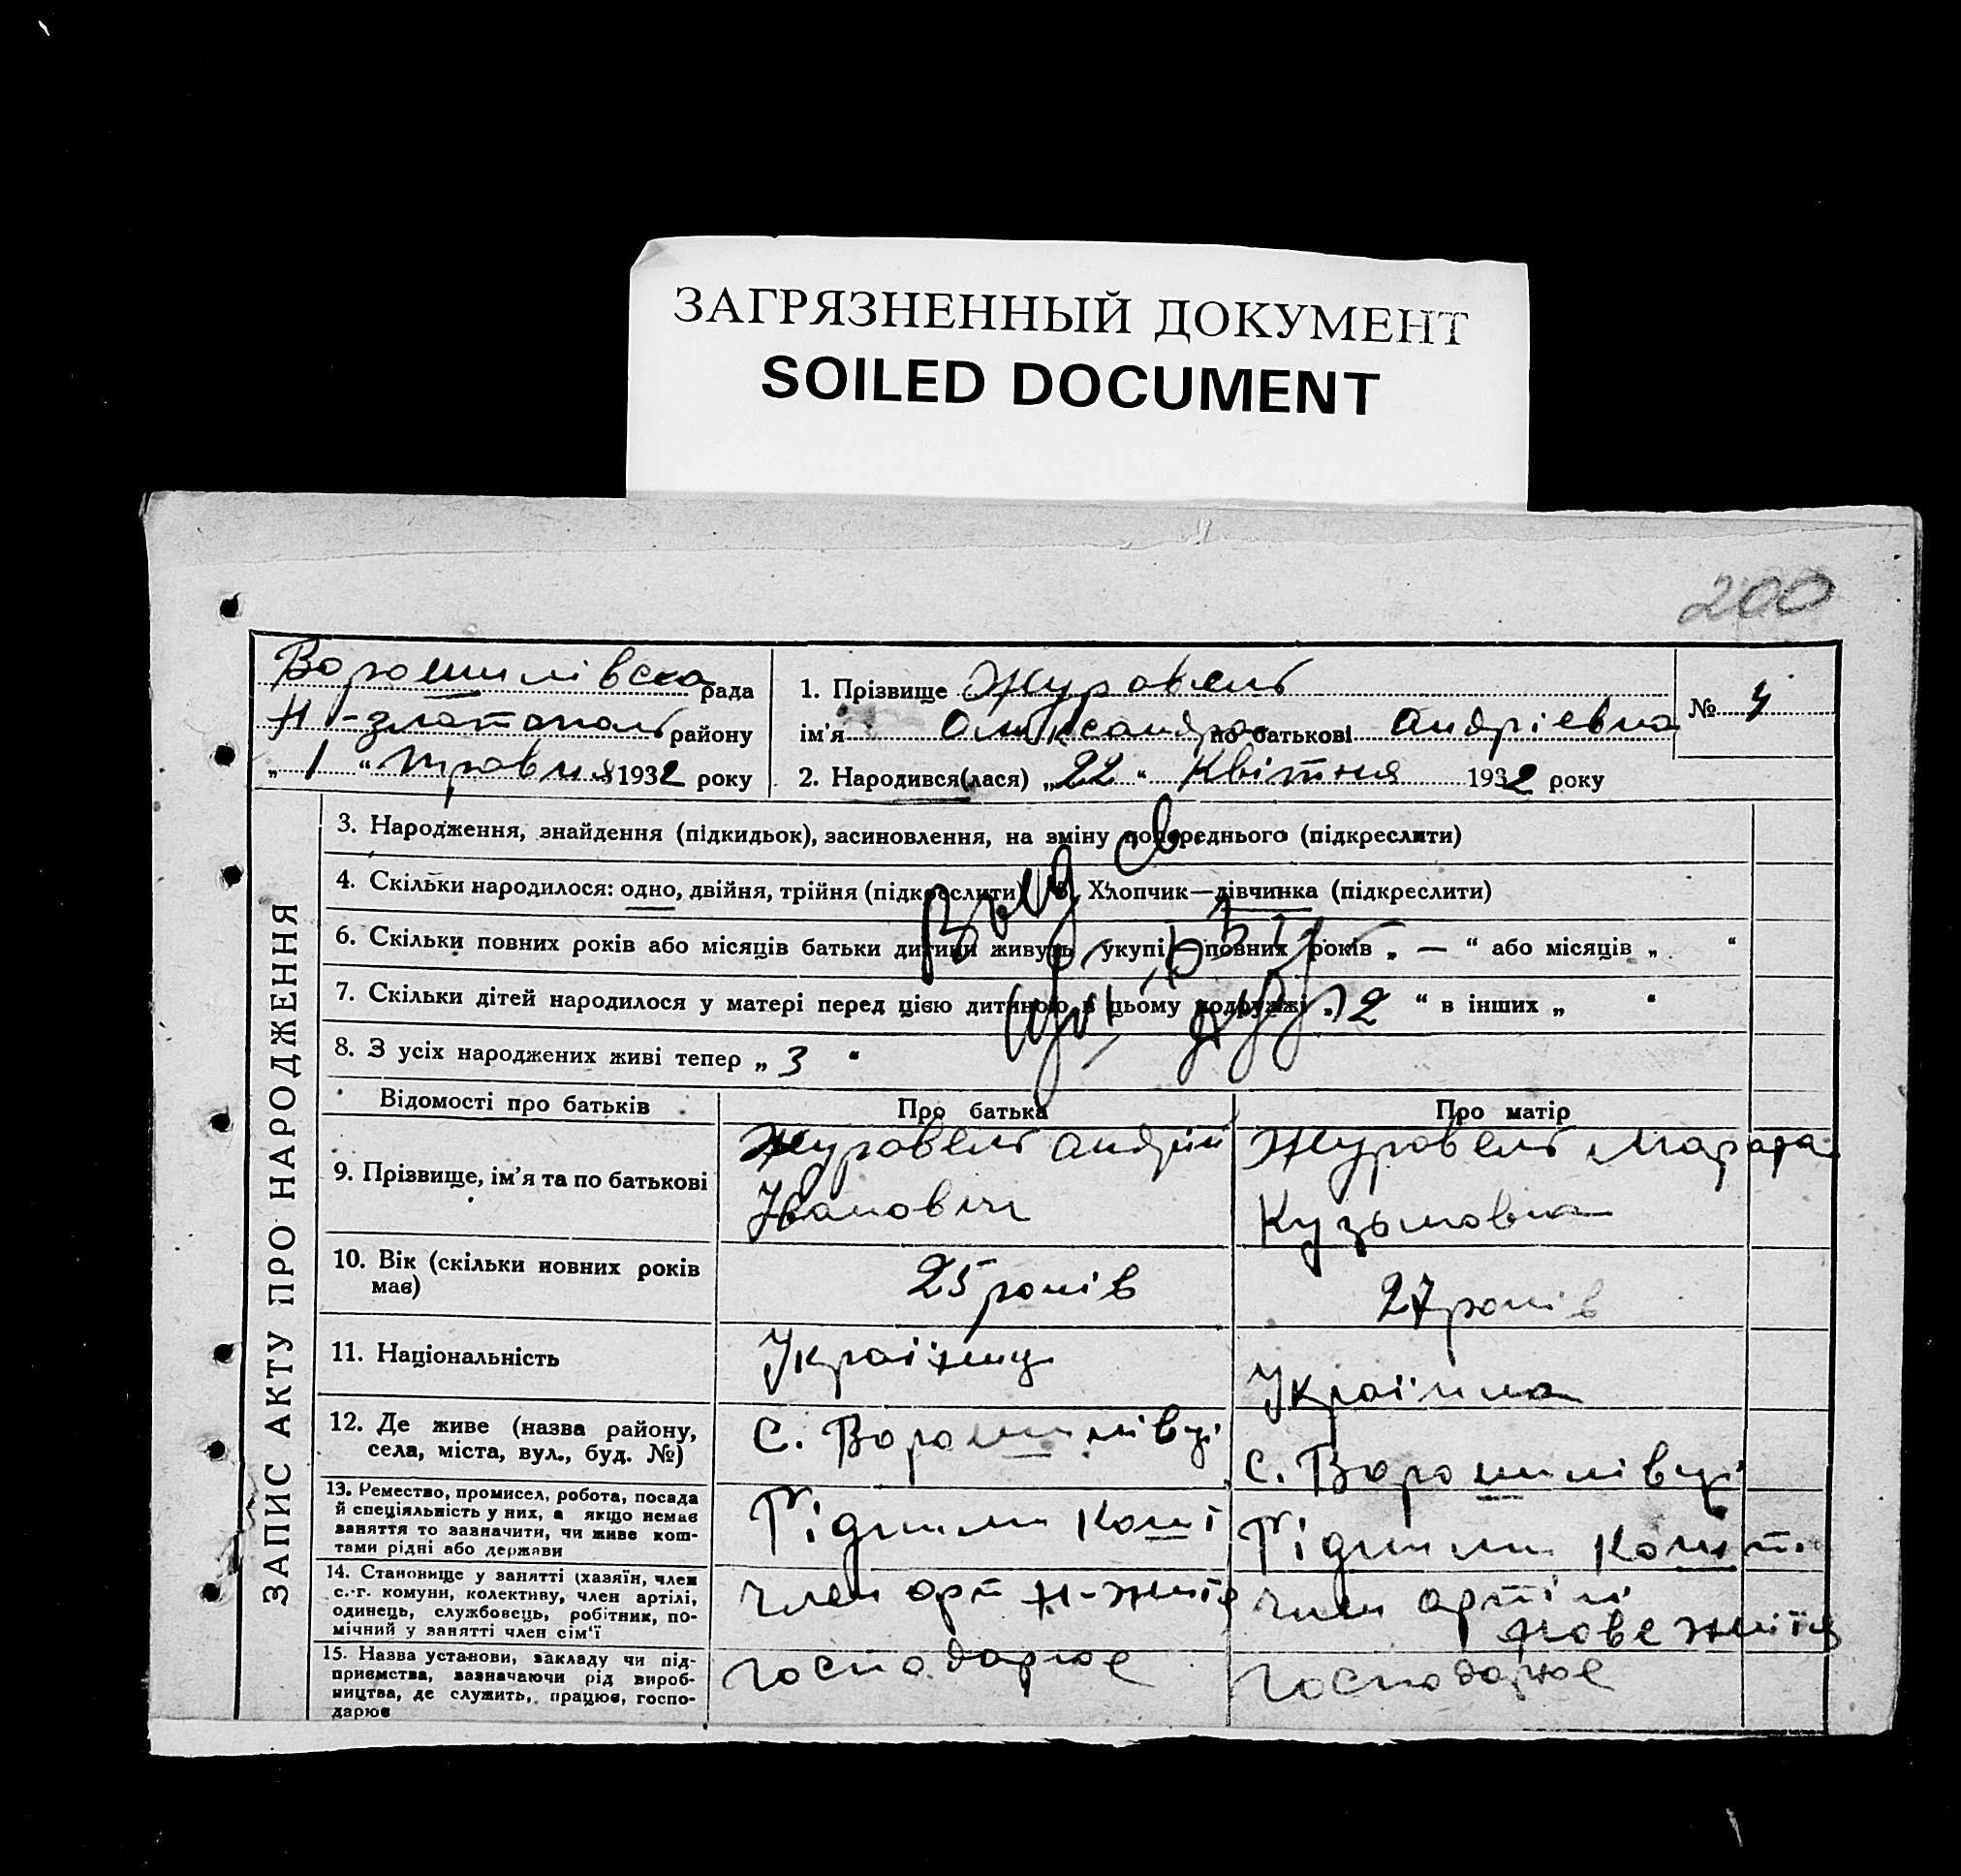 ЗАГРЯЗНЕННЫЙ ДОКУМЕНТ
SOILED DOCUMENT
200
Ворошилівска рада
Н-златополь району
„ 1 “ травня 1932 року
1. Прізвище Журавель
ім'я Олександра по батькові Андрієвна
№ 4
2. Народився(лася) „22“ Квітня 1932 року
ЗАПИС АКТУ ПРО НАРОДЖЕННЯ
3. Народження, знайдення (підкидьок), засиновлення, на зміну попереднього (підкреслити)
4. Скільки народилося: одно, двійня, трійня (підкреслити) 5. Хлопчик—дівчинка (підкреслити)
6. Скільки повних років або місяців батьки дитини живуть укупі—повних років „ — “ або місяців „ “
7. Скільки дітей народилося у матері перед цією дитиною в цьому подружжі „ 2 “ в інших „ “
8. З усіх народжених живі тепер „ 3 “
Відомості про батьків Про батька Про матір
9. Прізвище, ім'я та по батькові
Журавель Андрій
Іванович
Журавель
Кузьмовна
10. Вік (скільки повних років має)
25 років
27 років
11. Національність
Українець
Українка
12. Де живе (назва району, села, міста, вул., буд. №)
с. Ворошилівці
с. Ворошилівці
13. Ремество, промисел, робота, посада
й спеціяльність у них, а якщо немає
заняття то зазначити, чи живе кош-
тами рідні або держави
14. Становище у занятті (хазяїн, член
с.-г. комуни, колективу, член артілі,
одинець, службовець, робітник, по-
мічний у занятті член сім'ї
член арт Н-життя
член артілі
нове життя
15. Назва установи, закладу чи під-
приємства, зазначаючи рід вироб-
ництва, де служить, працює, госпо-
дарює
господарює
господарює